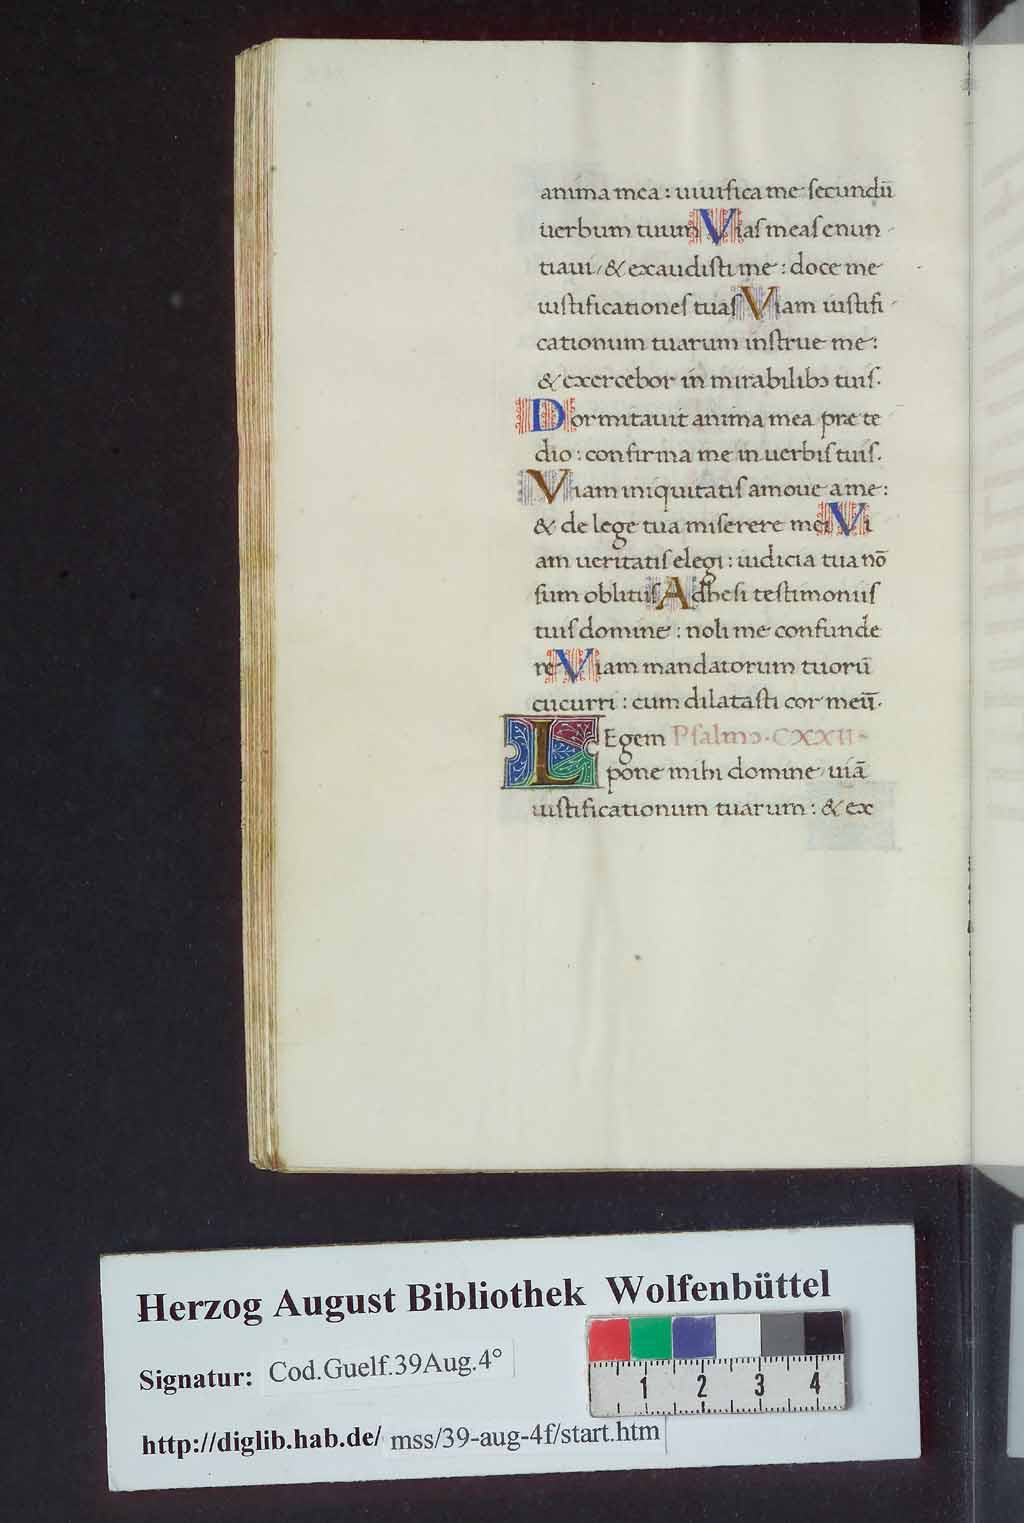 anima mea : uiuifica me ſecundū
uerbum tuum Vias meaſ enun
tiaui, & exaudiſti me : doce me
iuſtificationeſ tuaſ Viam iuſtifi
cationum tuarum inſtrue me :
& exercebor in mirabilibꝫ tuiſ.
Dormitauit anima mea præ te
dio : confirma me in uerbiſ tuiſ.
Viam iniquitatiſ amoue a me :
& de lege tua miſerere mei Vi
am ueritatiſ elegi : iudicia tua nō
ſum oblituſ Adheſi teſtimoniiſ
tuiſ domine : noli me confunde
re Viam mandatorum tuorū
cucurri : cum dilataſti cor meū.
LEgem Pſalmꝰ. CXXII
pone mihi domine uiā
iuſtificationum tuarum : & ex
Herzog August Bibliothek Wolfenbüttel
Signatur: Cod.Guelf.39Aug.4°
1 2 3 4
http://diglib.hab.de/ mss/39-aug-4f/start.htm